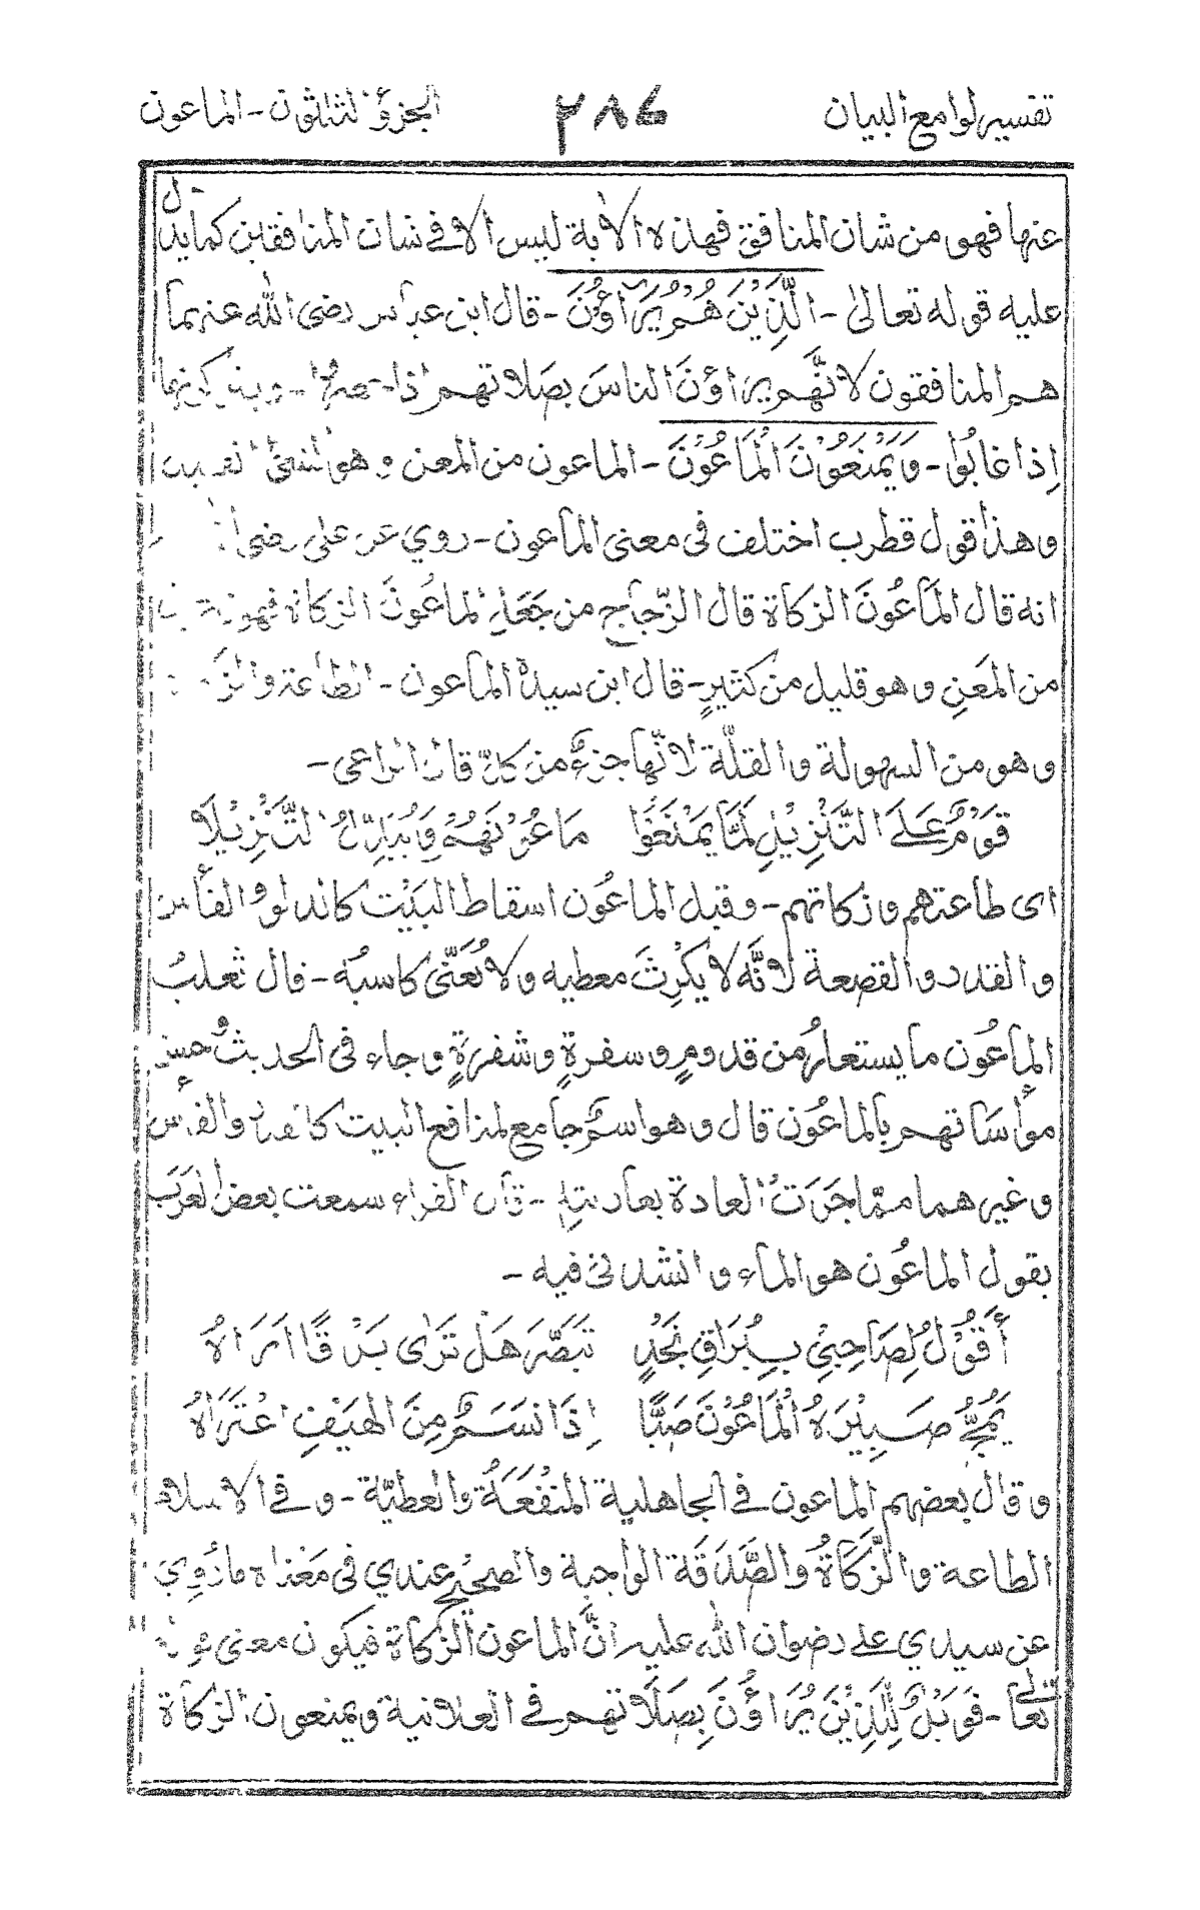 تفسير لوامع البيان ٢٨٦ الجزؤ الثلثون - الماعون
عنها فهو من شان المنافق فهذه الاية ليس الا في شان المنافقين كمايدل
عليه قوله تعالى - الَّذِيْنَ هُمْ يُرَاؤُنَ - قال ابن عباس رضى الله عنهما
هم المنافقون لانَّهم يراؤنَ الناسَ بصَلاتهم اذا
إذا غابُوا - وَيَمْنَعُوْنَ الْمَاعُوْنَ - الماعون من المعن وهو الشئ
وهذا قول قطرب اختلف فى معنى الماعون - روي عن على رضى
انه قال الماعُونَ الزكاة قال الزّجاج من جَعَلَ الماعُونَ الزكاة فهو
من المَعنِ وهو قليل من كثيرٍ - قال ابن سيدة الماعون - الطاعة والز
وهو من السهولة والقلّة لانّها جزءٌ من كلّ قال الراعى -
قَوْمٌ عَلَى التَّنْزِيْلِ لَمَّا يَمْنَعُوْا مَاعُوْنَهُمْ وَيُبَدِّلُوْا التَّنْزِيْلَا
اى طاعتهم وزكاتهم - وقيل الماعُون اسقاط البَيْت كالدلوِ والفأس
والقدر والقصعة لانَّه لا يَكرِثَ معطيه ولا يُعَنّى كاسبُه - قال ثعلبُ
الماعُون ما يستعارُ من قدومٍ وسفرةٍ وشفرةٍ وجاء فى الحديث حسن
موأساتهم بالماعُون قال وهو اسمٌ جامع لمنافع البيت كالقدر والفأس
وغيرهما ممّا جَرَت العادة بعاريته - قال الفراء سمعت بعض العَرَب
يقول الماعُون هو الماء وانشدنى فيه -
أَقُوْلُ لِصَاحِبِيْ بِبُرَاقِ نَجْدٍ تَبَصَّرْ هَلْ تَرٰى بَرْقًا اَرَاهُ
يَمُجُّ صَبِيْرُهُ الْمَاعُوْنَ صَبًّا إِذَا نَسَمٌ مِنَ الهَيْفِ اعْتَرَاهُ
وقال بعضهم الماعون في الجاهلية المنْفَعَةُ والعطيّة - وفي الاسلام
الطاعة والزّكاةُ والصَّدَقَة الواجبة والصحيح عندي فى مَعْناه ما رُوِي
عن سيدي على رضوان الله عليه انَّ الماعون الزكاة فيكون معنى قوله
تعالى - فَوَيْلٌ لِلَّذِيْنَ يُرَاؤُنَ بِصَلَاتهم في العلانية ويمنعون الزكاة